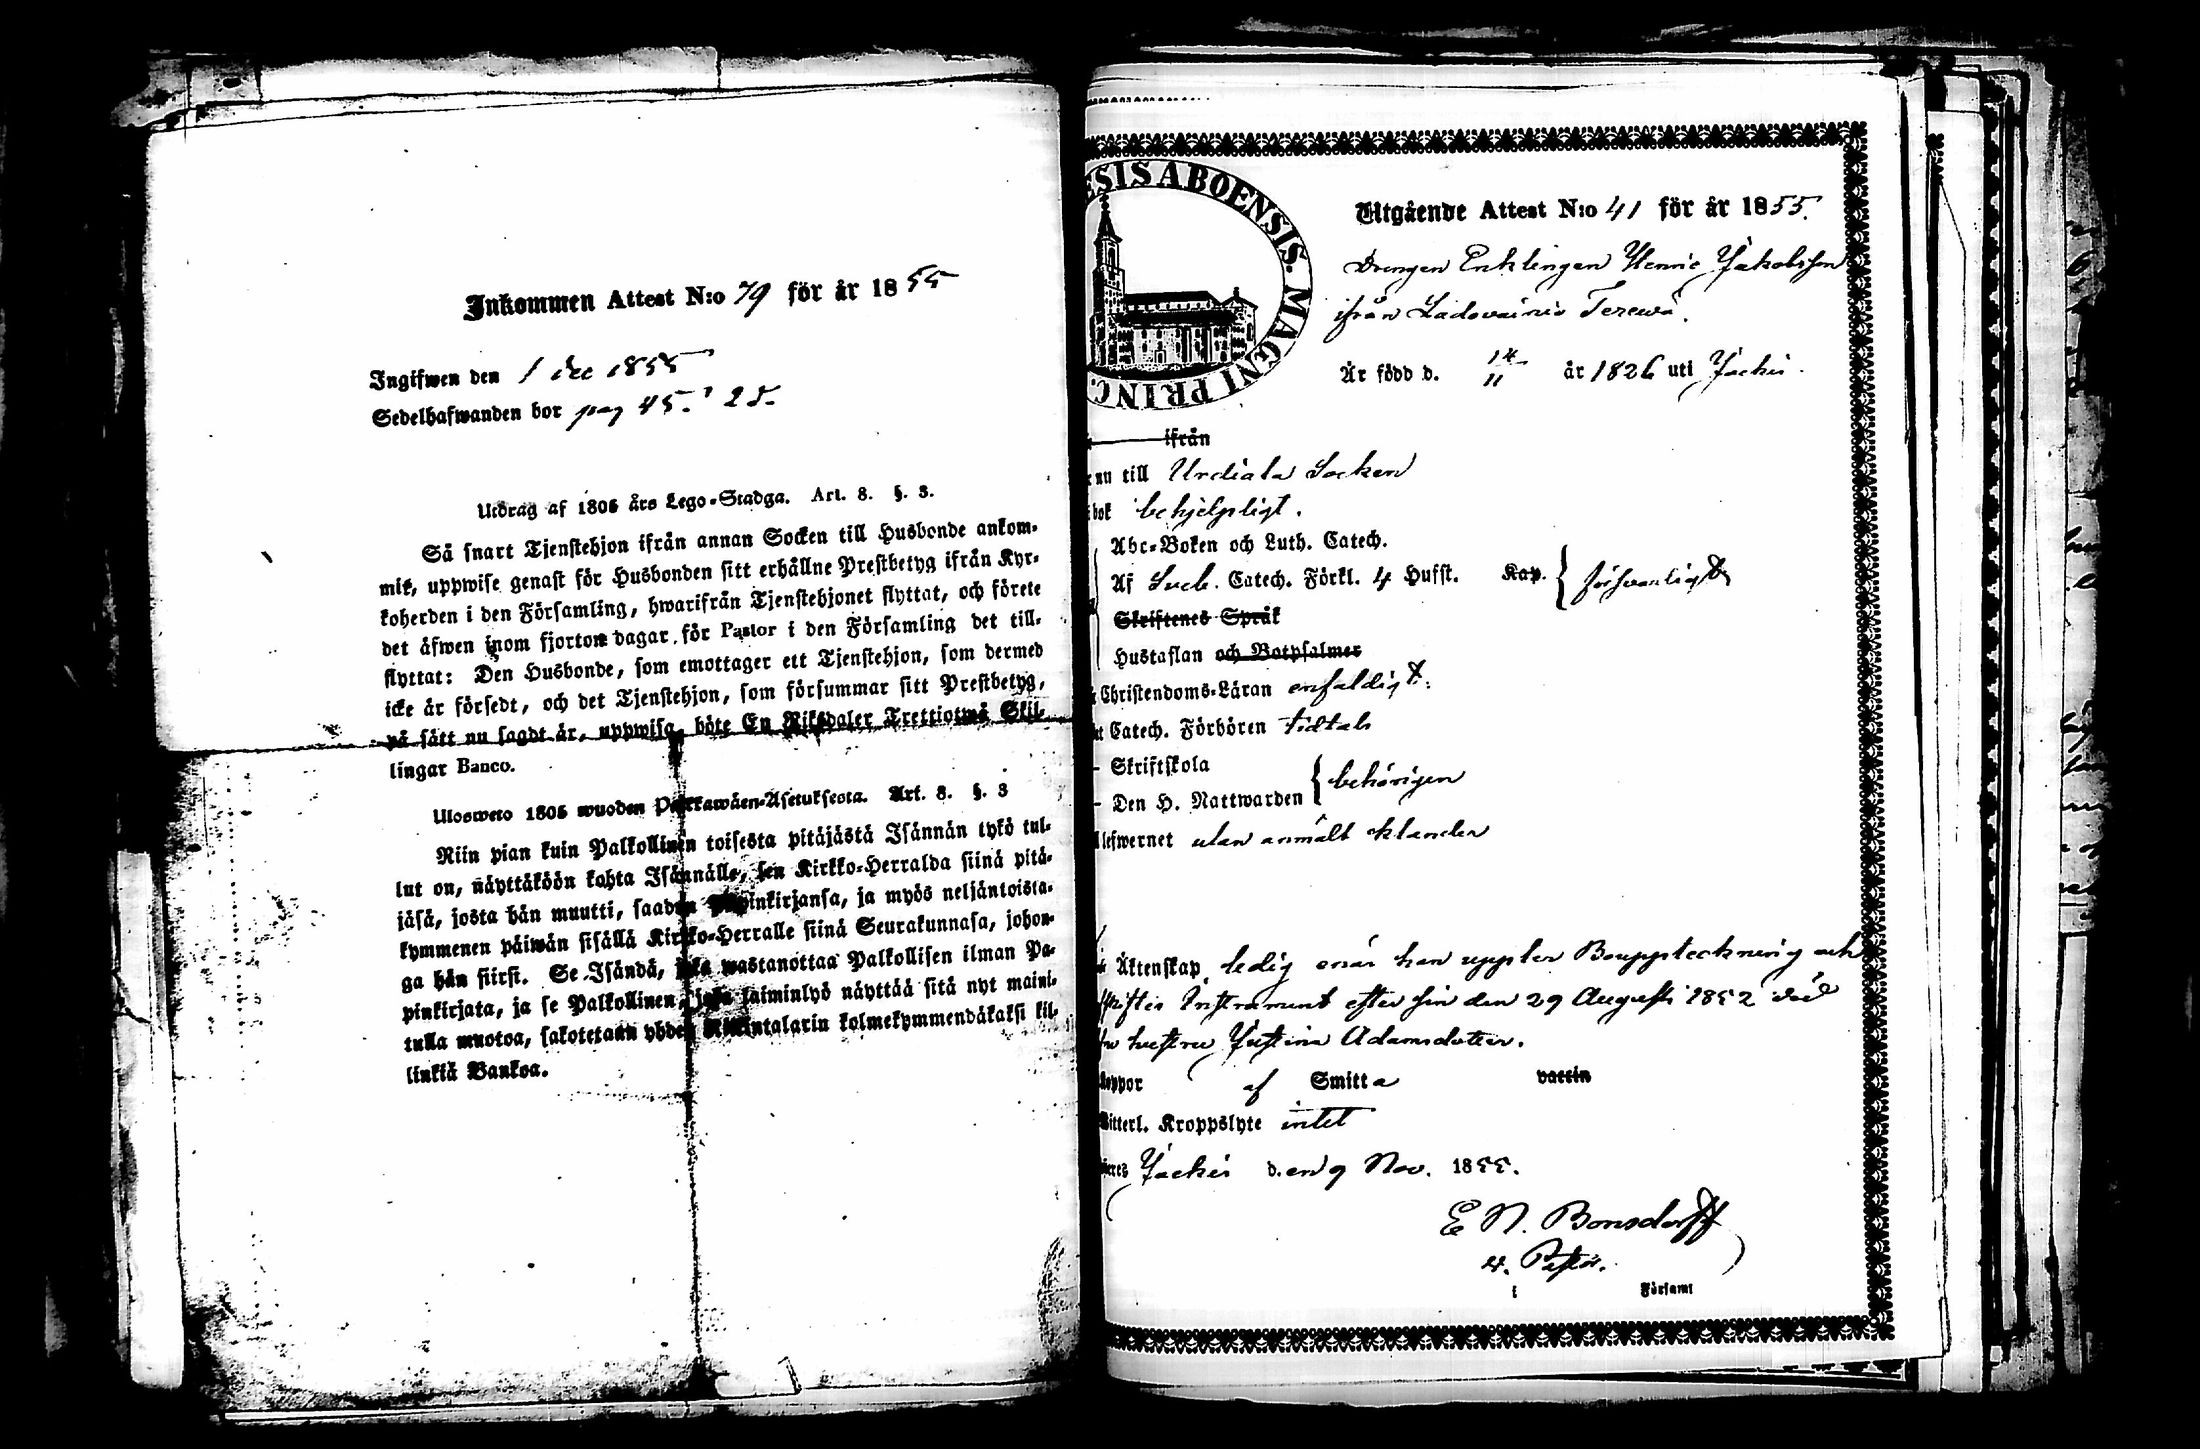 Inkommen Attest N:o 79 för år 1855
Ingifwen den 1 dec 1855
Sedelhafwanden bor pag 45.
Utdrag af 1805 års Lego-Stadga. Art. 8. §. 3.
Så snart Tjenstehjon ifrån annan Socken till Husbonde ankom-
mit, uppwise genast för Husbonden sitt erhållne Prestbetyg ifrån Kyr-
koherden i den Församling, hwarifrån Tjenstehjonet flyttat, och förete
det äfwen inom fjorton dagar för Pastor i den Församling det till-
flyttat: Den Husbonde, som emottager ett Tjenstehjon, som dermed
icke är försedt, och det Tjenstehjon, som försummar sitt Prestbetyg,
på sätt nu sagdt är, uppwisa, böte En Riksdaler Trettiotwå Skil-
lingar Banco.
Ulosweto 1805 wuoden Palkawäen-Asetuksesta. Art. 8. §. 3
Niin pian kuin Palkollinen toisesta pitäjästä Isännän tykö tul-
lut on, näyttäköön kohta Isännälle, sen Kirkko-Herralda siinä pitä-
jäsä, josta hän muutti, saadun Papinkirjansa, ja myös neljäntoista-
kymmenen päiwän sisällä Kirkko-Herralle siinä Seurakunnasa, johon-
ga hän siirsi. Se Isändä, joka wastanottaa Palkollisen ilman Pa-
pinkirjata, ja se Palkollinen, joka laiminlyö näyttää sitä nyt maini-
tulla muotoa, sakotetaan yhden Riikintalarin kolmekymmendäkaksi kil-
linkiä Bankoa.
ESIS ABOENSIS. MAGNI PRINC.
Utgående Attest N:o 41 för år 1855.
Drengen Enklingen Henric Jakobsson
ifrån Ladovainio Terewä.
Är född d. 14/11 år 1826 uti Jockis.
ifrån
nu till Urdiala Socken
bok behjelpligt.
Abc-Boken och Luth. Catech.
Af Sveb. Catech. Förkl. 4 Hufst. Kap. försvarligt
Skriftenes Språk
Hustaflan och Botpsalmer
Christendoms-Läran enfaldigt.
Catech. Förhören tidtals
Skriftskola
Den H. Nattwarden behörigen
lefwernet utan anmält klander
Äktenskap ledig enär han uppter Bouppteckning och
skiftes Instrument efter sin den 29 Augusti 1852 död
hustru Justina Adamsdotter.
koppor af Smitta vaccin
Witterl. Kroppslyte intet
Jockis d. en 9 Nov. 1855.
E N. Bonsdorff
v. Pastor.
i Församl